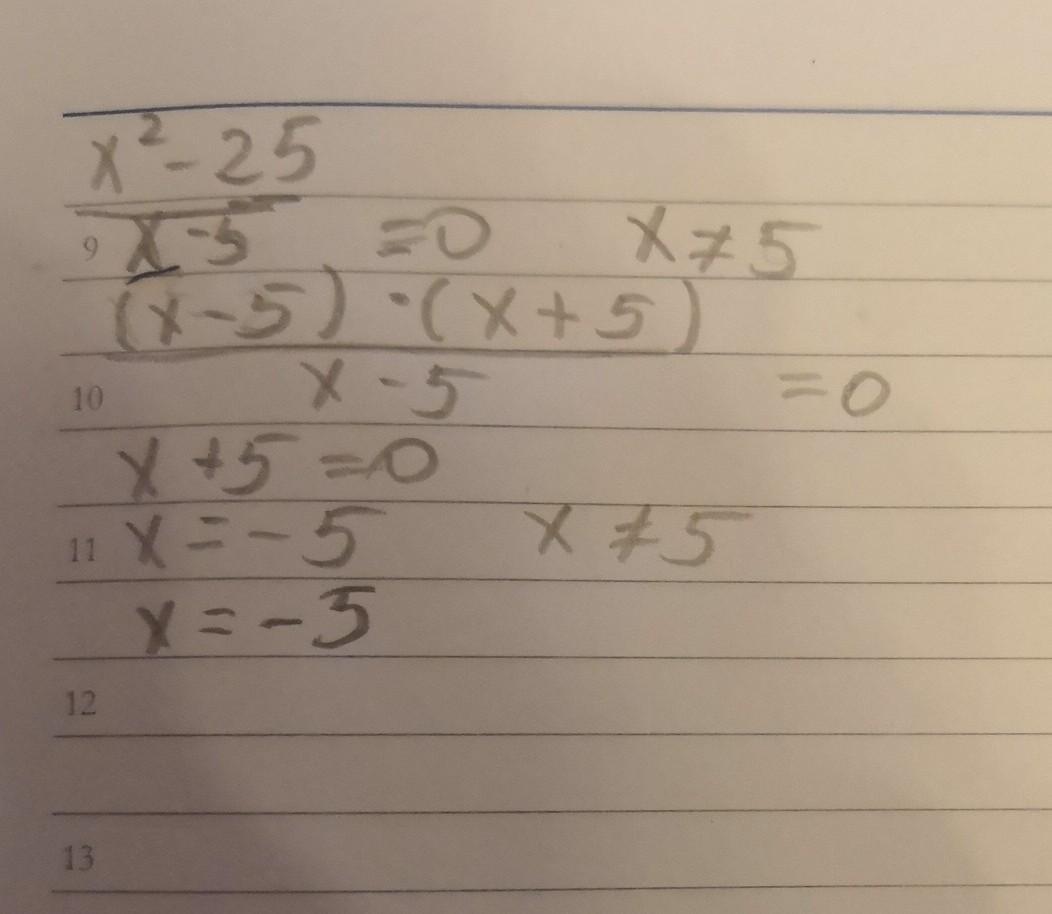 x² - 25
9 x - 5 = 0 x ≠ 5
(x - 5) · (x + 5)
10 x - 5 = 0
x + 5 = 0
11 x = -5 x ≠ 5
x = -5
12
13